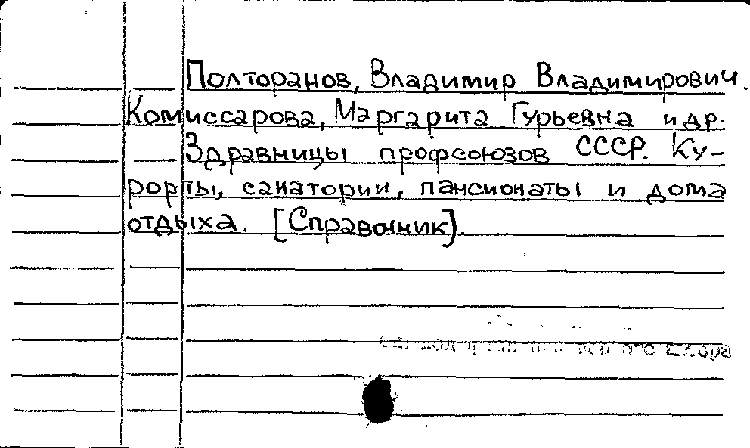 Полторанов, Владимир Владимирович.
Комиссарова, Маргарита Гурьевна и др.
Здравницы профсоюзов СССР. Ку-
рорты, санатории, пансионаты и дома
отдыха. [Справочник].